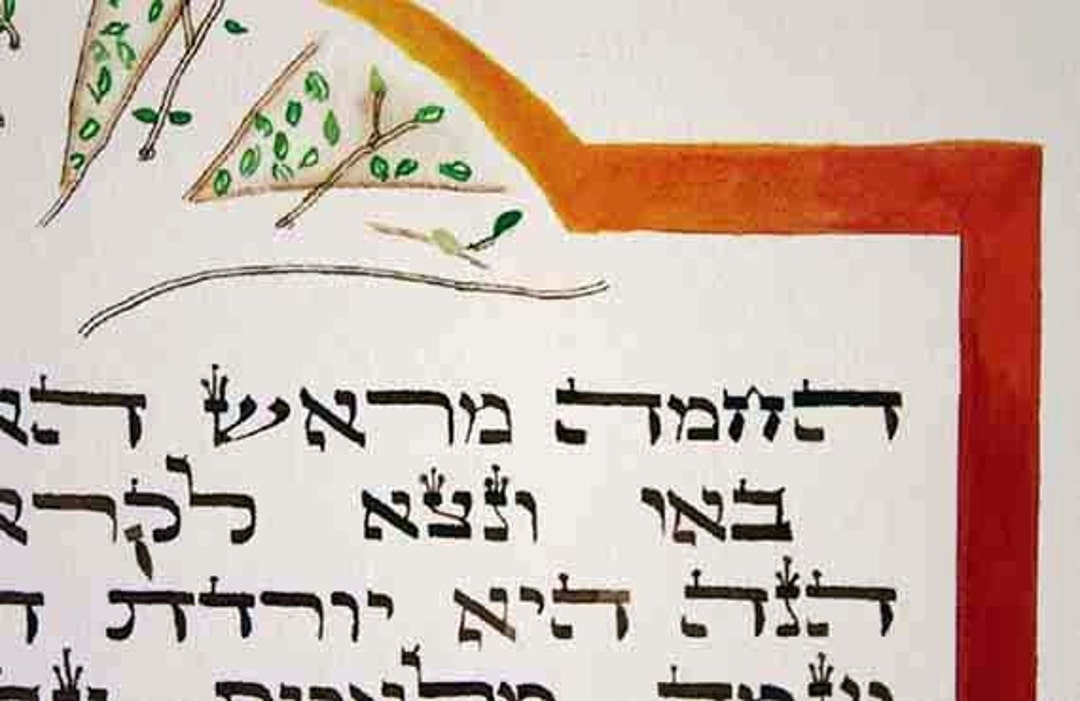 החמה מראש הא
באי ונצא לקרא
הנה היא יורדת ה